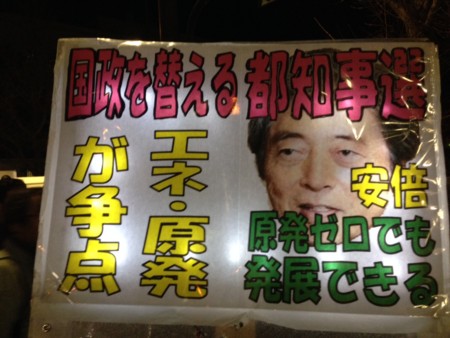 国政を替える都知事選
エネ・原発
が争点
安倍
原発ゼロでも
発展できる